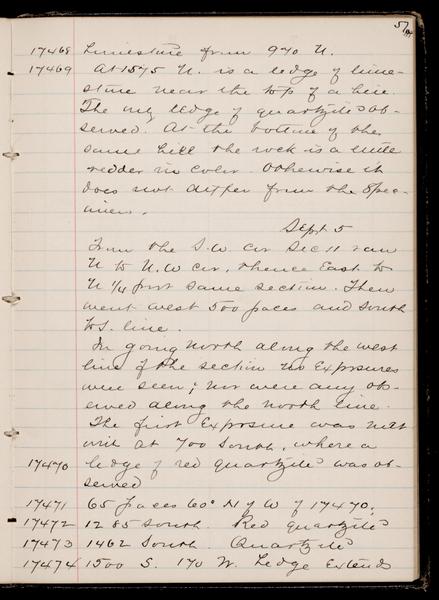 57
17468 Limestone from 970 N.
17469 At 1575 N. is a ledge of lime-
stone near the top of a hill.
The only ledge of quartzite ob-
served. At the bottom of the
same hill the rock is a little
redder in color. Otherwise it
does not differ from the spec-
imen.
Sept 5
From the S.W cor Sec 11 ran
N to N.W cor, thence East to
N 1/4 post same section. Then
went west 500 paces and south
to S. line.
In going north along the west
line of the section no exposures
were seen; nor were any ob-
served along the north line.
The first Exposure was met
with at 700 South, where a
17470 ledge of red quartzite was ob-
served
17471 65 paces 60° N of W of 17470.
17472 1285 south Red quartzite
17473 1462 South. Quartzite
17474 1500 S. 170 W. Ledge Extends